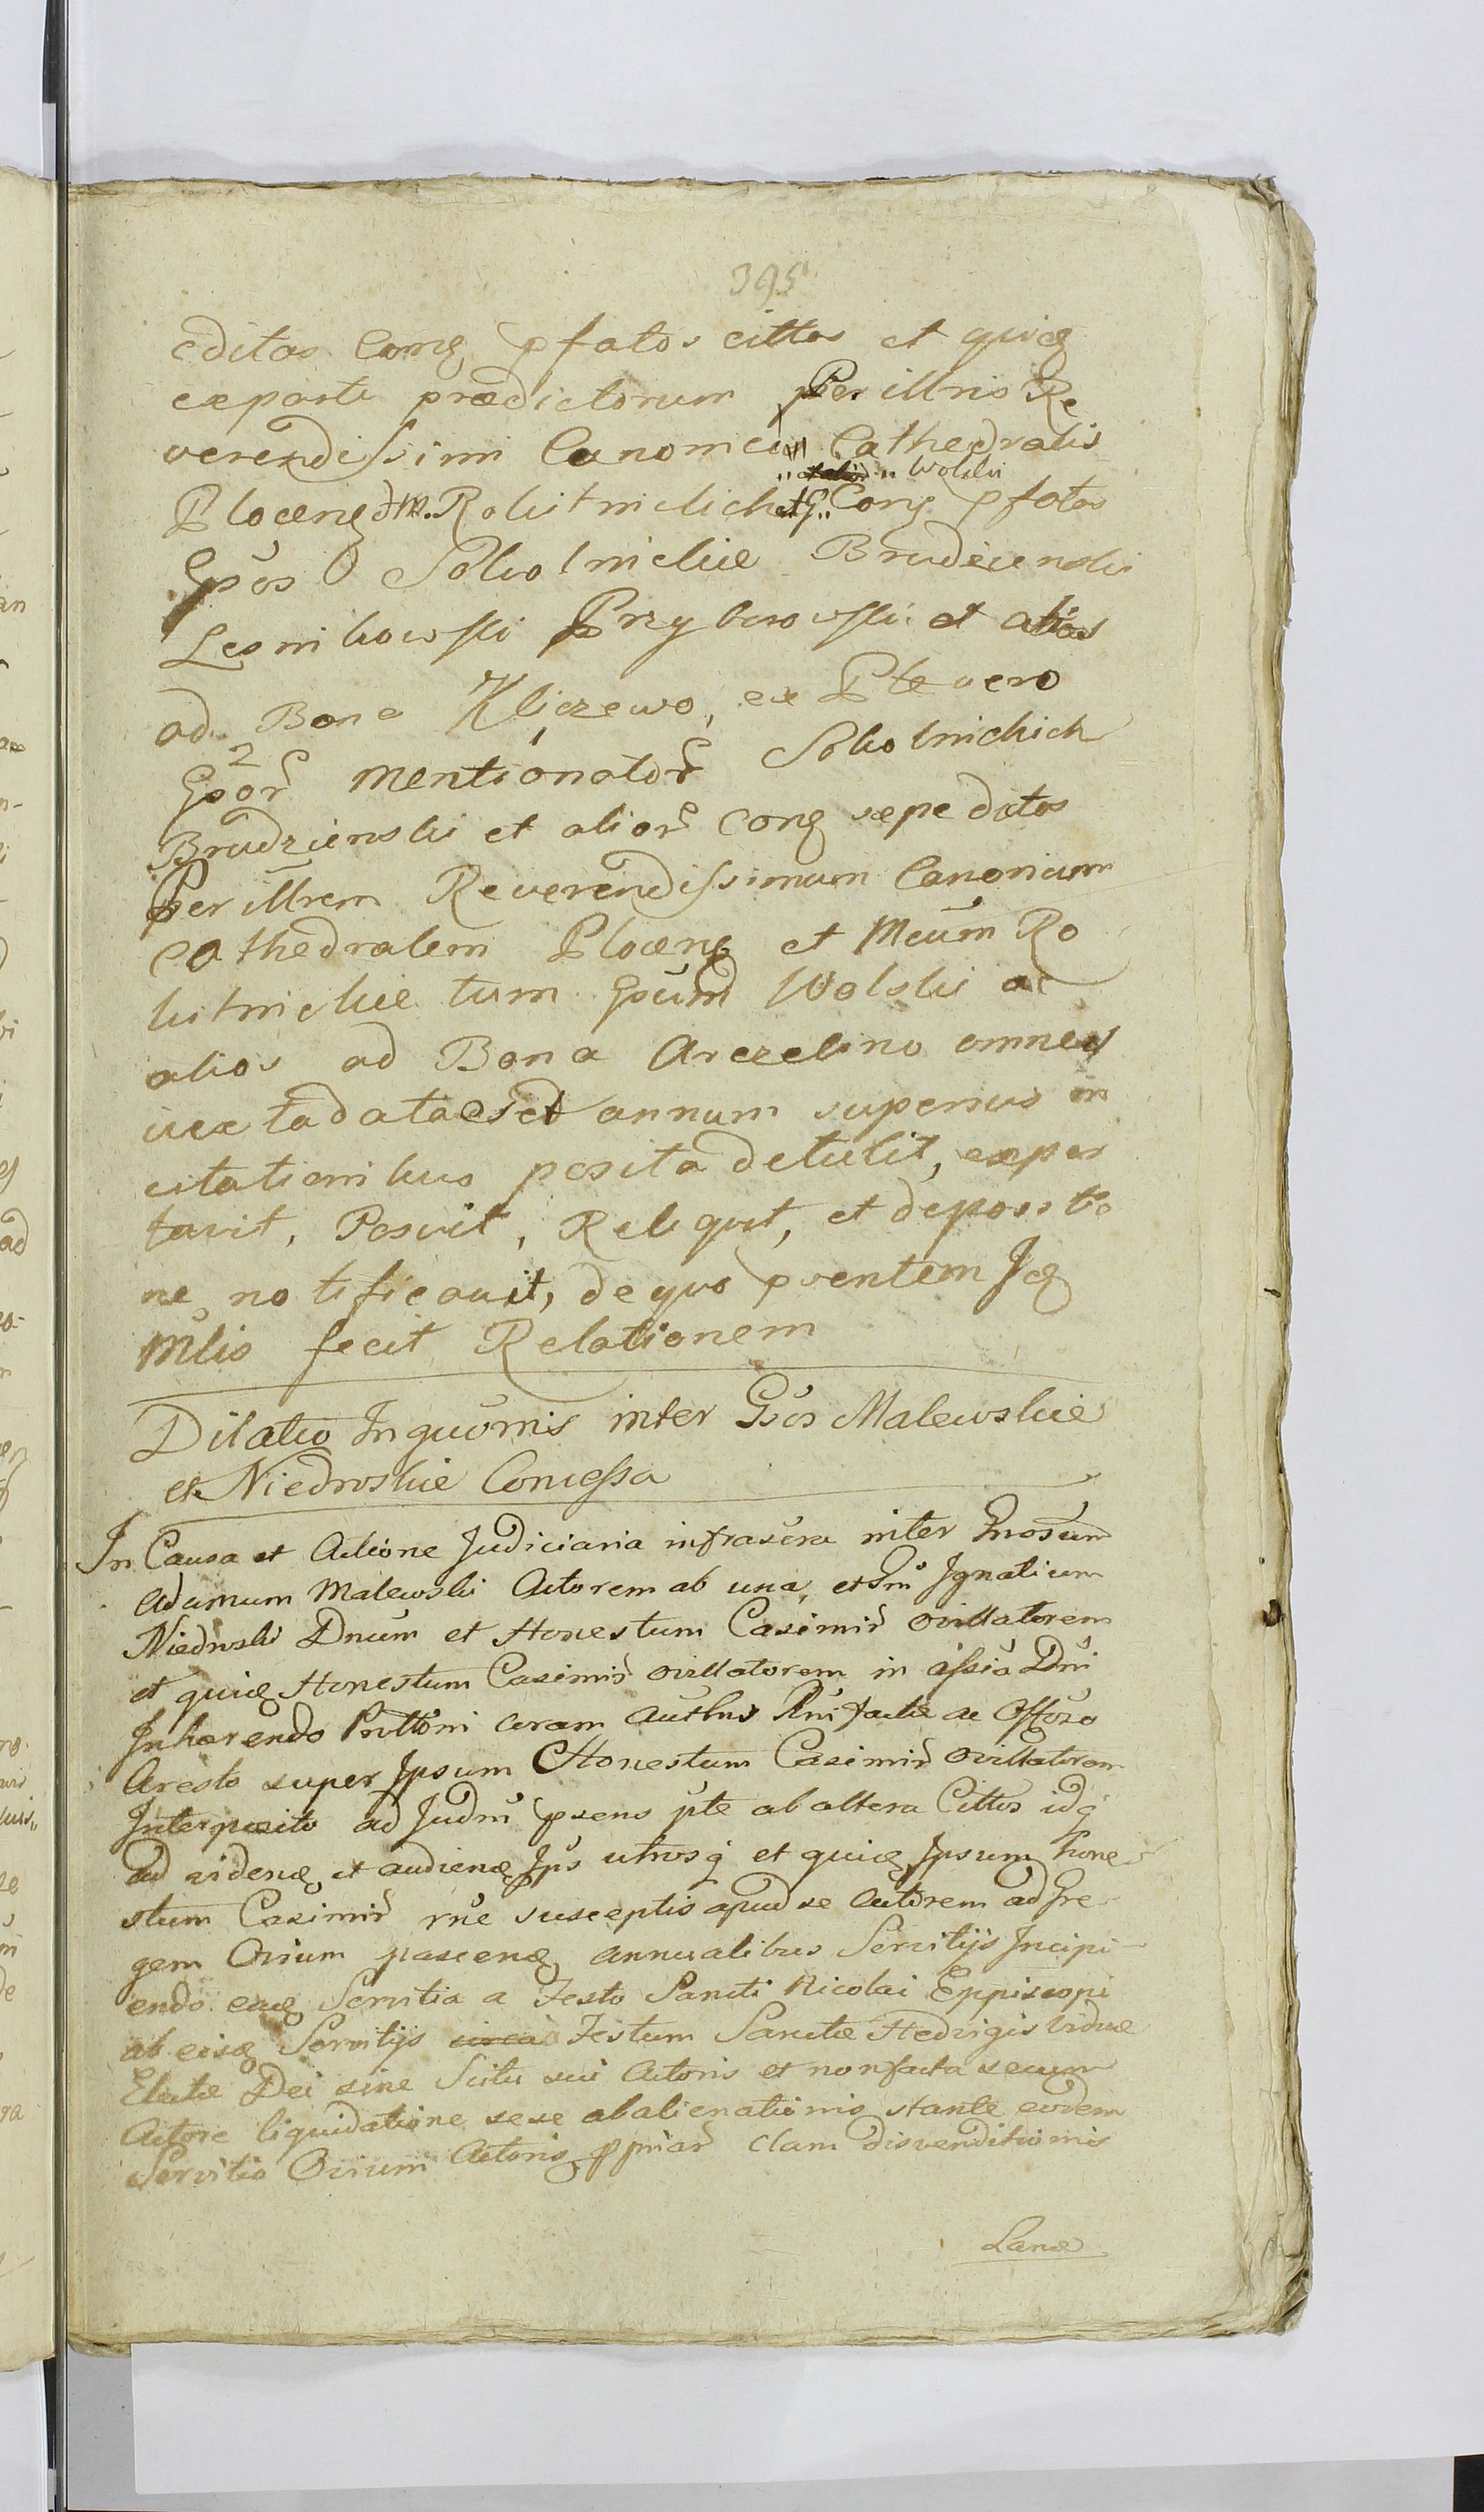 395
editas Conq pfatos cittos et quidq
exparte prædictorum Perillris Re
verendissimi Canonici Cathedralis
Wolski
Plocenq et M. Rokitnickich et G. Conq pfatos
Gsos Sokolnickie Brudzienski
Lesnikowski Przyborowski et alios
ad Bona Kliczewo, ex Pte vero
2
Gsor mentionator Sokolnickich
Brudzienski et alior Conq sæpe dictos
Perillrem Reverendissimum Canonicum
Cathedralem Plocenq et Mcum Ro
kitnickie tum Gsum Wolski ac
alios ad Bona Arcelino omnes
iuxta datas et annum superius in
citationibus posita detulit, expor
tavit, Posuit, Reliquit, et depositio
ne notificavit, de quo psentem Jdq
Mlis fecit Relationem
Dilatio Inquomis inter Gsos Malewskie
et Niedroskie Concessa
In Causa et Actione Judiciaria infrascra inter Gnosum
Adamum Malewski Actorem ab una, et Gm Ignatium
Niedroski Dnum et Honestum Casimir ovillatorem
et quidq Honestum Casimir ovillatorem in assia Dni
Inhærendo Prottoni coram Acthus Rni factæ ac Offoso
Aresto super Ipsum Honestum Casimir ovillatorem
Interposito ad Judm psens pte ab altera Cittos idq
ad vidend et audiend Ips utrosq et quidq Ipsum hone
stum Casimir rne susceptis apud se Actorem ad Gre
gem Ovium pascend annualibus Servitijs Incipi
endo eadq Servitia a Festo Sancti Nicolai Eppiscopi
ab eisdq Servitijs circa Festum Sanctæ Hedvigis viduæ
Electæ Dei sine Scitu sui Actoris et non facta secum
Actore liquidatione sese abalienationis stante eodem
Servitio Ovium Actoris ppriar clam disvenditionis
Lanæ